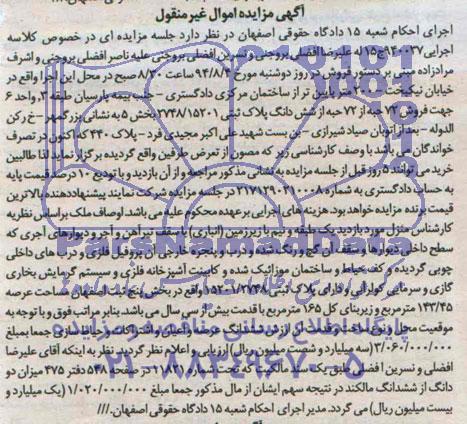 آگهی مزایده اموال غیرمنقول
اجرای احکام شعبه ۱۵ دادگاه حقوقی اصفهان در نظر دارد جلسه مزایده ای در خصوص کلاسه
اجرایی ۹۴۰۰۳۷ج۱۵ له علیرضا افضلی بروجنی و نسرین افضلی بروجنی علیه ناصر افضلی بروجنی و اشرف
مرادزاده مبنی بر دستور فروش در روز دوشنبه مورخ ۹۴/۸/۴ ساعت ۸/۳۰ صبح در محل این اجرا واقع در
خیابان نیکبخت ۲۰۰ متر پایین تر از ساختمان مرکزی دادگستری جنب بیمه پارسیان طبقه ۲ واحد ۶
جهت فروش ۷۲ حبه از ۷۲ حبه از شش دانگ پلاک ثبتی ۲۷۴۸/۱۵۲۰۱ بخش ۵ به نشانی بزرگمهر - خ رکن
الدوله - بعد از اتوبان صیاد شیرازی - بن بست شهید علی اکبر مجیدی فرد - پلاک ۴۴۰ که اکنون در تصرف
خواندگان می باشد با وصف کارشناسی زیر که مصون از تعرض طرفین واقع گردیده برگزار نماید لذا طالبین
خرید می توانند ۵ روز قبل از جلسه مزایده به نشانی مذکور مراجعه و از آن بازدید و با تودیع ۱۰ درصد قیمت پایه
به حساب دادگستری به شماره ۲۱۷۱۲۹۰۲۱۰۰۰۸ در جلسه مزایده شرکت نمایند پیشنهاد دهنده بالاترین
قیمت برنده مزایده خواهد بود. هزینه های اجرایی بر عهده محکوم علیه می باشد. اوصاف ملک براساس نظریه
کارشناس منزل مورد بازدید یک طبقه و نیم با زیرزمین (انباری) با سقف تیرآهن و آجر و دیوارهای آجری که
سطح داخلی دیوارها و سقف آن گچ و رنگ شده و درب و پنجره خارجی آن پروفیل فلزی و درب های داخلی
چوبی گردیده و کف حیاط و ساختمان موزائیک شده و کابینت آشپزخانه فلزی و سیستم گرمایش بخاری
گازی و سرمایی کولر آبی و دارای پلاک ثبتی ۲۷۴۸/۱۵۲۰۱ واقع در بخش پنج ثبت اصفهان مساحت عرصه
۱۴۳/۴۵ مترمربع و زیربنای کل ۱۶۵ مترمربع با قدمت بیش از سی سال می باشد. بنابر مراتب فوق و با توجه به
موقعیت محل و نوع ساخت و قدمت آن ارزش ششدانگ عرصه و اعیان و اشتراکات و امتیازات جمعا بمبلغ
۳/۰۶۰/۰۰۰/۰۰۰ (سه میلیارد و شصت میلیون ریال) ارزیابی و اعلام نظر گردید. نظر به اینکه آقای علیرضا
افضلی و نسرین افضلی طبق یک سند مالکیت که تحت شماره در صفحه ۵۴۸ دفتر ۴۷۵ میزان دو
دانگ از ششدانگ مالکند در نتیجه سهم ایشان از مال مذکور جمعا مبلغ ۱/۰۲۰/۰۰۰/۰۰۰ (یک میلیارد و
بیست میلیون ریال) می گردد. مدیر اجرای احکام شعبه ۱۵ دادگاه حقوقی اصفهان. ///
ParsNamadData